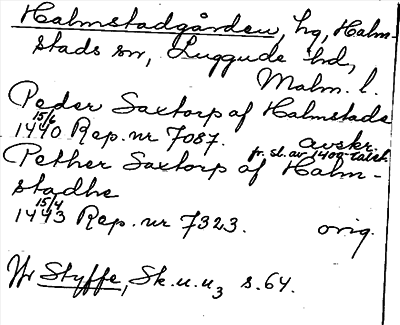 Halmstadgården, hg, Halm-
stads sn, Luggude hd,
Malm. l.
Peder Saxtorp af Halmstade
15/6
1440 Rep. nr 7087. avskr.
fr. sl. av 1400-talet
Pether Saxtorp af Halm-
stadhe
15/4
1443 Rep. nr 7323. orig.
Jfr Styffe, Sk.u.u3 s.64.